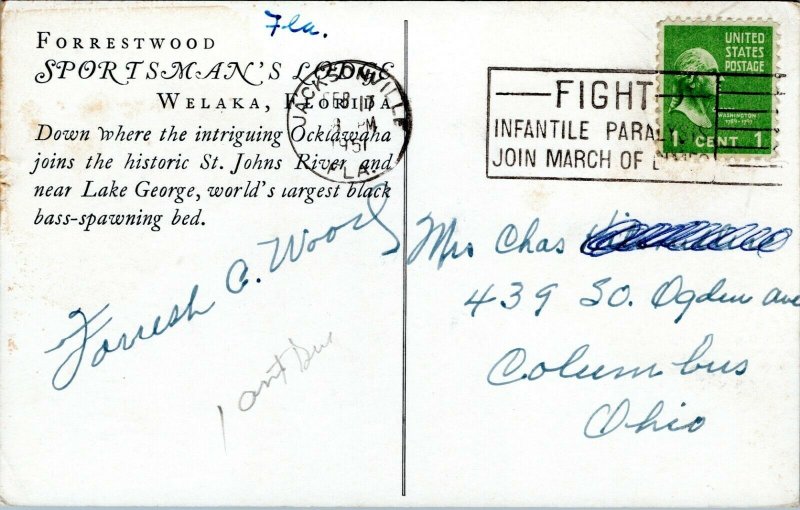 Fla.
FORRESTWOOD
SPORTSMAN'S LODGE
WELAKA, FLORIDA
Down where the intriguing Ocklawaha
joins the historic St. Johns River and
near Lake George, world's largest black
bass-spawning bed.
JACKSONVILLE
FEB 13
PM
1951
FLA.
FIGHT
INFANTILE PARALYSIS
JOIN MARCH OF DIMES
UNITED
STATES
POSTAGE
WASHINGTON
1789-1797
1 CENT 1
Forrest C. Wood
Mrs Chas
439 So. Ogden ave
Columbus
Ohio